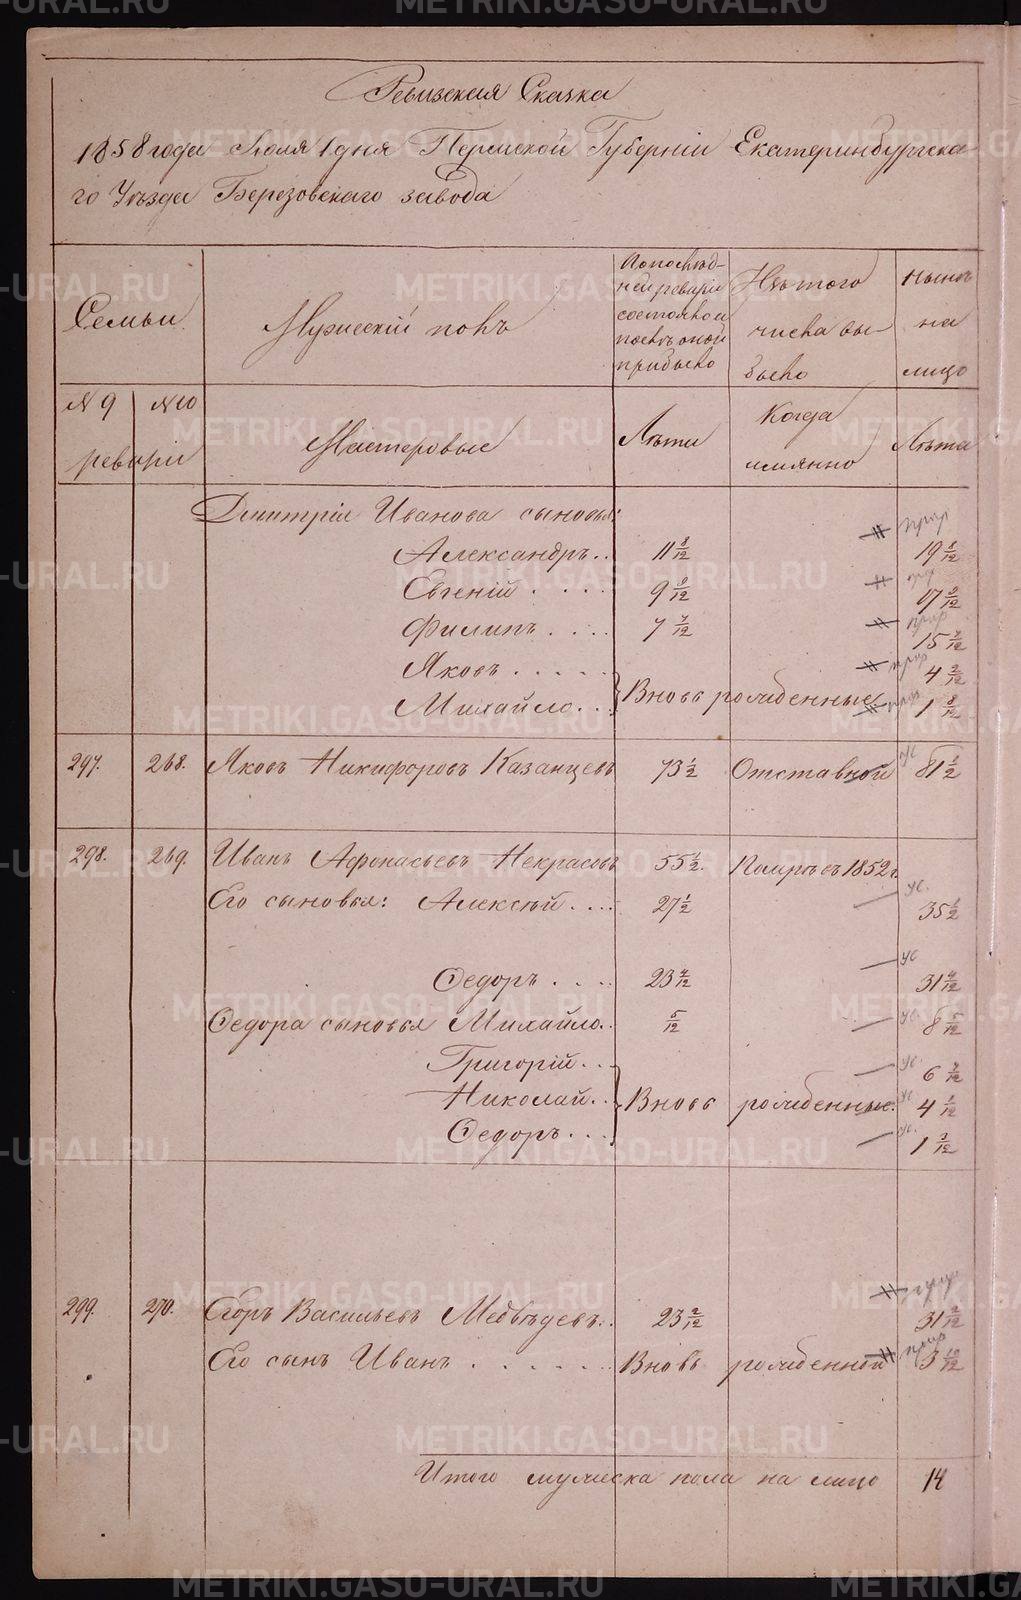 Ревизская Сказка
1858 года Июля 1 дня Пермской Губерніи Екатеринбургска-
го Уѣзда Березовскаго завода
Семьи
Мужескій полъ
По послѣд-
ней ревизіи
состояло и
послѣ оной
прибыло
Изъ того
числа вы-
было
Нынѣ
на
лицо
№ 9 № 10
ревизіи
Мастеровые
Лѣта
Когда
имянно
Лѣта
Дмитрія Иванова сыновья:
Александръ.. 11 8/12 19 8/12
Евгеній .... 9 9/12 17 9/12
Филипъ .... 7 7/12 15 7/12
Яковъ ..... 4 2/12
Михайло... Вновь рожденные 1 8/12
297. 268. Яковъ Никифоровъ Казанцевъ 73 1/2 Отставной 81 1/2
298. 269. Иванъ Афонасьевъ Некрасовъ 55 1/2. Помръ въ 1852 г.
Его сыновья: Алексѣй.... 27 1/2 35 1/2
Федоръ.... 23 4/12 31 4/12
Федора сыновья Михайло.. 5/12 8 5/12
Григорій... 6
Николай.. Вновь рожденные. 4 1/12
Федоръ.... 1
299. 270. Егоръ Васильевъ Медвѣдевъ.. 23 2/12 31 2/12
Его сынъ Иванъ ....... Вновь рожденной 3 10/12
Итого мужеска пола на лицо 14
METRIKI.GASO-URAL.RU